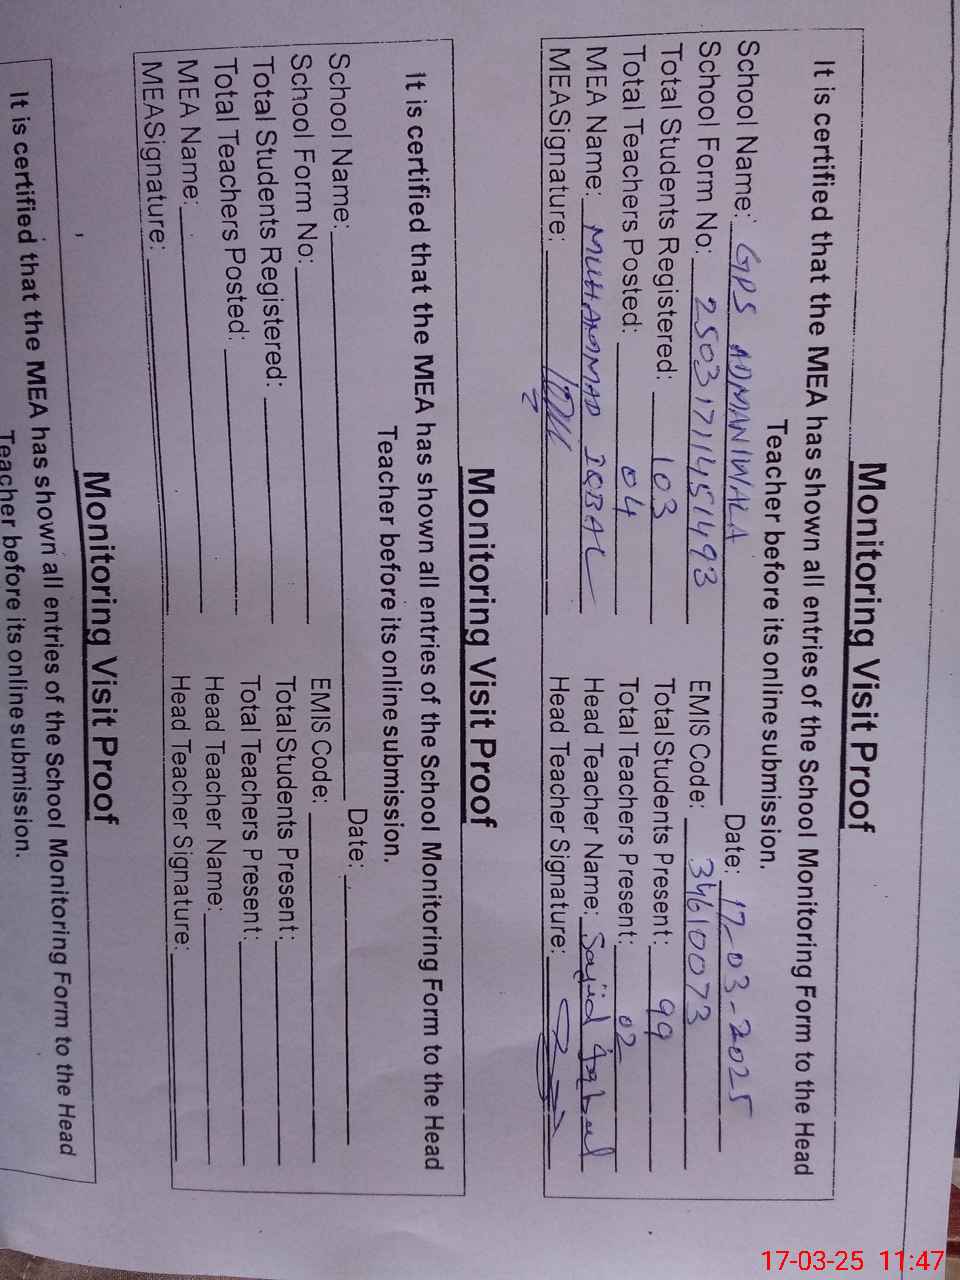 Monitoring Visit Proof
It is certified that the MEA has shown all entries of the School Monitoring Form to the Head
Teacher before its online submission.
School Name: GPS ADMANIWALA Date: 17-03-2025
School Form No: 25031711451493 EMIS Code: 34610073
Total Students Registered: 103 Total Students Present: 99
Total Teachers Posted: 04 Total Teachers Present: 02
MEA Name: MUHAMMAD IQBAL Head Teacher Name: Sajid
MEASignature: Head Teacher Signature:
Monitoring Visit Proof
It is certified that the MEA has shown all entries of the School Monitoring Form to the Head
Teacher before its online submission.
School Name: Date:
School Form No: EMIS Code:
Total Students Registered: Total Students Present:
Total Teachers Posted: Total Teachers Present:
MEA Name: Head Teacher Name:
MEASignature: Head Teacher Signature:
Monitoring Visit Proof
It is certified that the MEA has shown all entries of the School Monitoring Form to the Head
Teacher before its online submission.
17-03-25 11:47